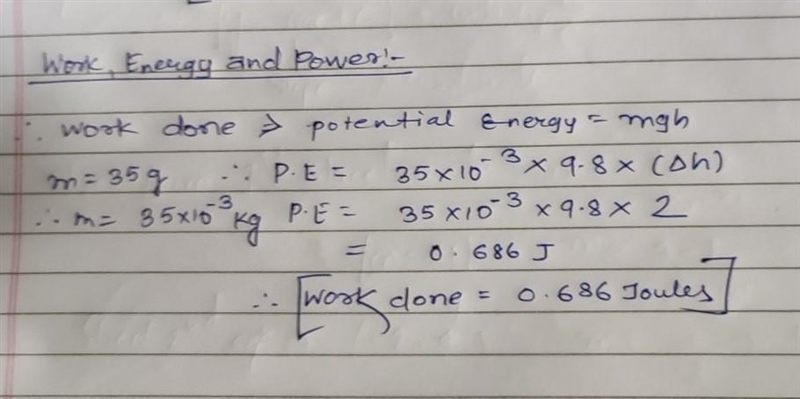 Work, Energy and Power:-
∴ work done ⇒ potential Energy = mgh
m = 35g ∴ P.E = 35×10⁻³ × 9.8 × (Δh)
∴ m = 35×10⁻³ kg P.E = 35×10⁻³ × 9.8 × 2
= 0.686 J
∴ [Work done = 0.686 Joules]